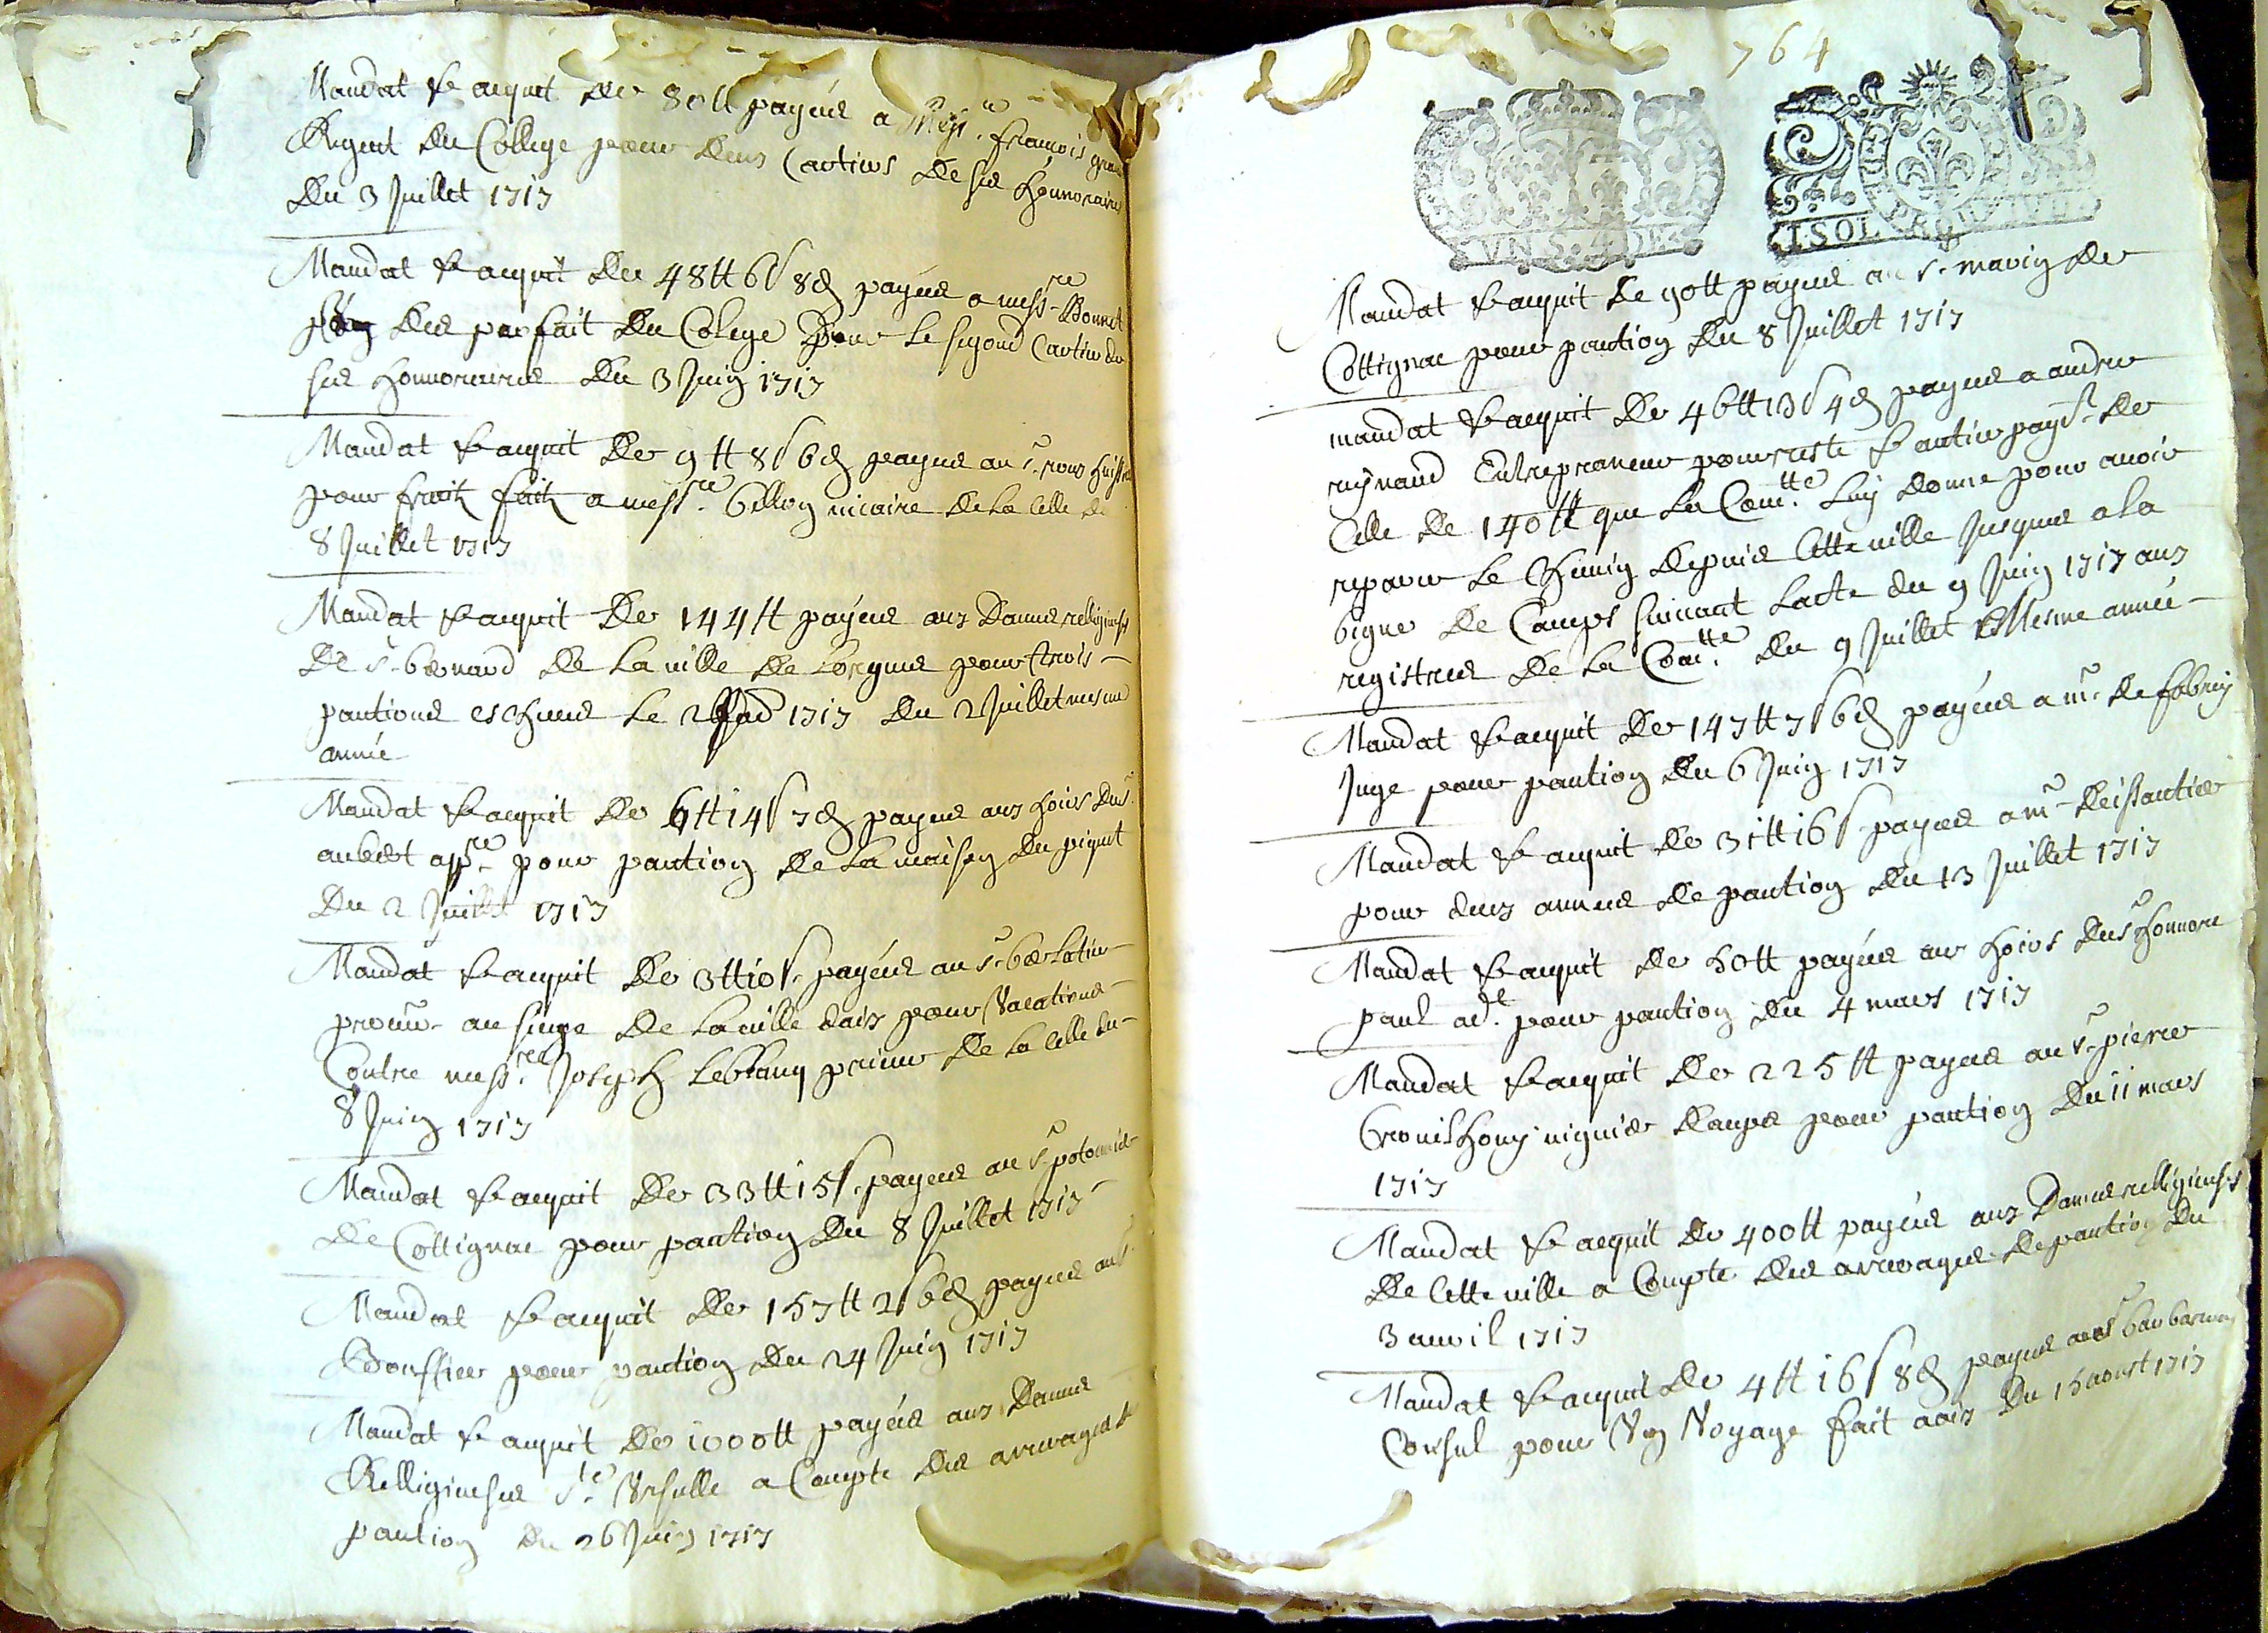 Mandat & acquit de 80 ℔ payées a Mess.re francois
Regent du College pour deux Cartiers de ses honnoraires
Du 3 Juillet 1717
Mandat & acquit de 48 ℔ 6 s 8 d payées a mess.re Bonnet
des par fait du Colege pour le segond Cartier de
ses honnoraires du 3 Juin 1717
Mandat & acquit de 9 ℔ 8 s 6 d payées au s.r roux huissier
pour fraix faitz a mess.re billon vicaire de la celle du
8 Juillet 1717
Mandat & acquit de 144 ℔ payées aux Dames relligieuses
De s.t bernard de la ville de Lorgues pour trois
pantions escheues le 1717 du 2 Juillet mesme
année
Mandat & acquit de 6 ℔ 14 s 7 d payées aux hoirs du s.r
aubert app.re pour pantion de la maison du piquet
Du 2 Juillet 1717
Mandat & acquit de 3 ℔ 10 s payées au s.r berlatier
procur. au siege de la ville daix pour Vacations
Contre mess.re Joseph Leblanq prieur de la celle du
8 Juin 1717
Mandat & acquit de 33 ℔ 15 s payées au s.r potonnier
De Cottignac pour pantion du 8 Juillet 1717
Mandat & acquit de 157 ℔ 2 s 6 d payées au s.r
Bouffier pour pantion du 24 Juin 1717
Mandat & acquit de 1000 ℔ payées aux Dames
Relligieuses s.te Ursulle a Compte des arrerages de
pantion du 26 Juin 1717
764
UN S. 4 DE.
I SOL
Mandat & acquit de 90 ℔ payées au s.r marin de
Cottignac pour pantion du 8 Juillet 1717
mandat & acquit de 46 ℔ 13 s 4 d payées a andre
reynaud Entrepreneur pour reste & entier paym.t de
Celle de 140 ℔ que la Com.tte luy donne pour avoir
reparer le chemin depuis cette ville jusques a la
bigue de Camps suivant lacte du 9 Juin 1717 aux
registres de la Com.tte du 9 Juillet Mesme année
Mandat & acquit de 147 ℔ 7 s 6 d payées a m.r de fabry
Juge pour pantion du 6 Juin 1717
Mandat & acquit de 31 ℔ 16 s payées a m.r deissautier
pour deux années de pantion du 13 Juillet 1717
Mandat & acquit de 50 ℔ payées aux hoirs du s.r honnore
paul ad.t pour pantion du 4 mars 1717
Mandat & acquit de 225 ℔ payées au s.r pierre
viguier daups pour pantion du 11 mars
1717
Mandat & acquit de 400 ℔ payées aux Dames relligieuses
De cette ville a Compte des arrerages de pantion du
3 avril 1717
Mandat & acquit de 4 ℔ 16 s 8 d payées au s.r barbaroux
Consul pour Un Voyage fait a aix du 15 aoust 1717